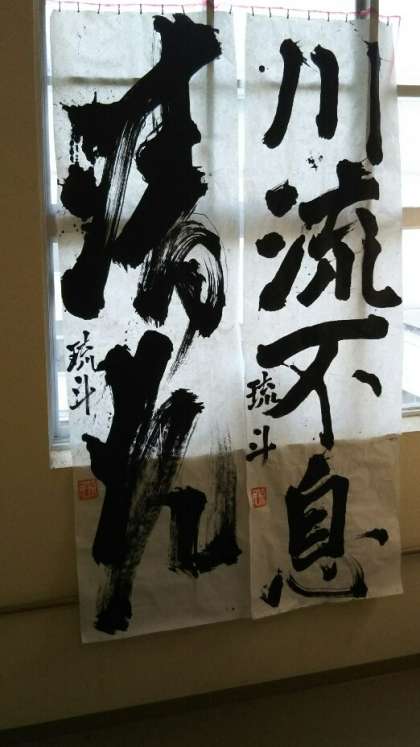 川流不息
琉斗
晴れ
琉斗